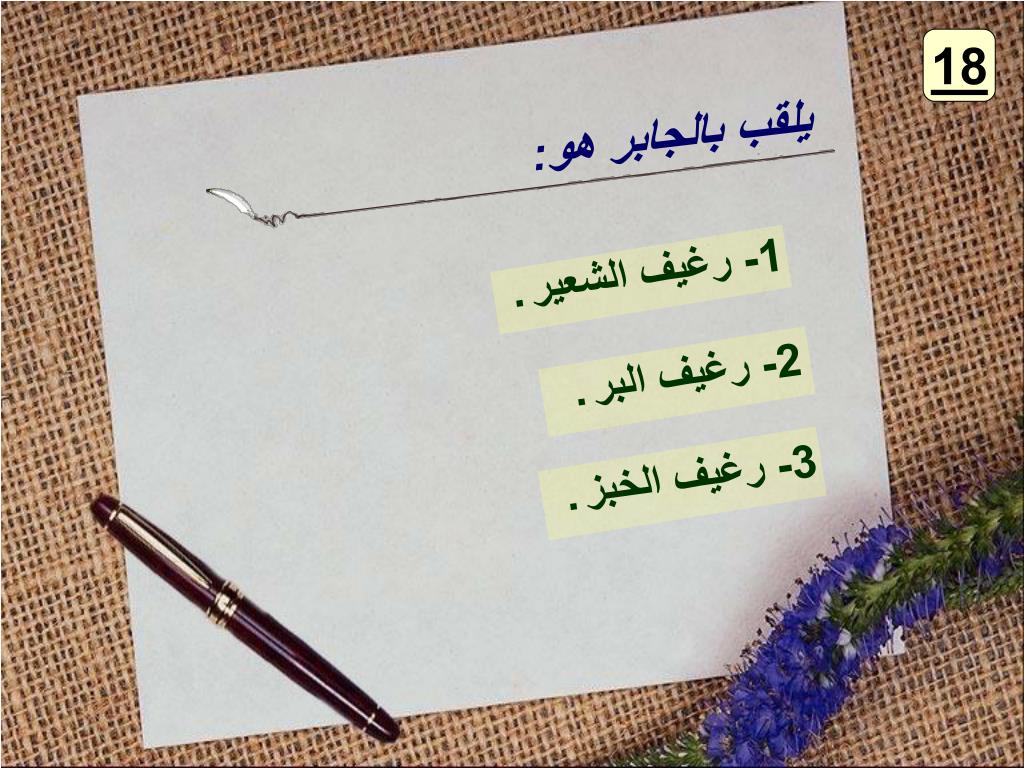 18
يلقب بالجابر هو:
1- رغيف الشعير.
2- رغيف البر.
3- رغيف الخبز.